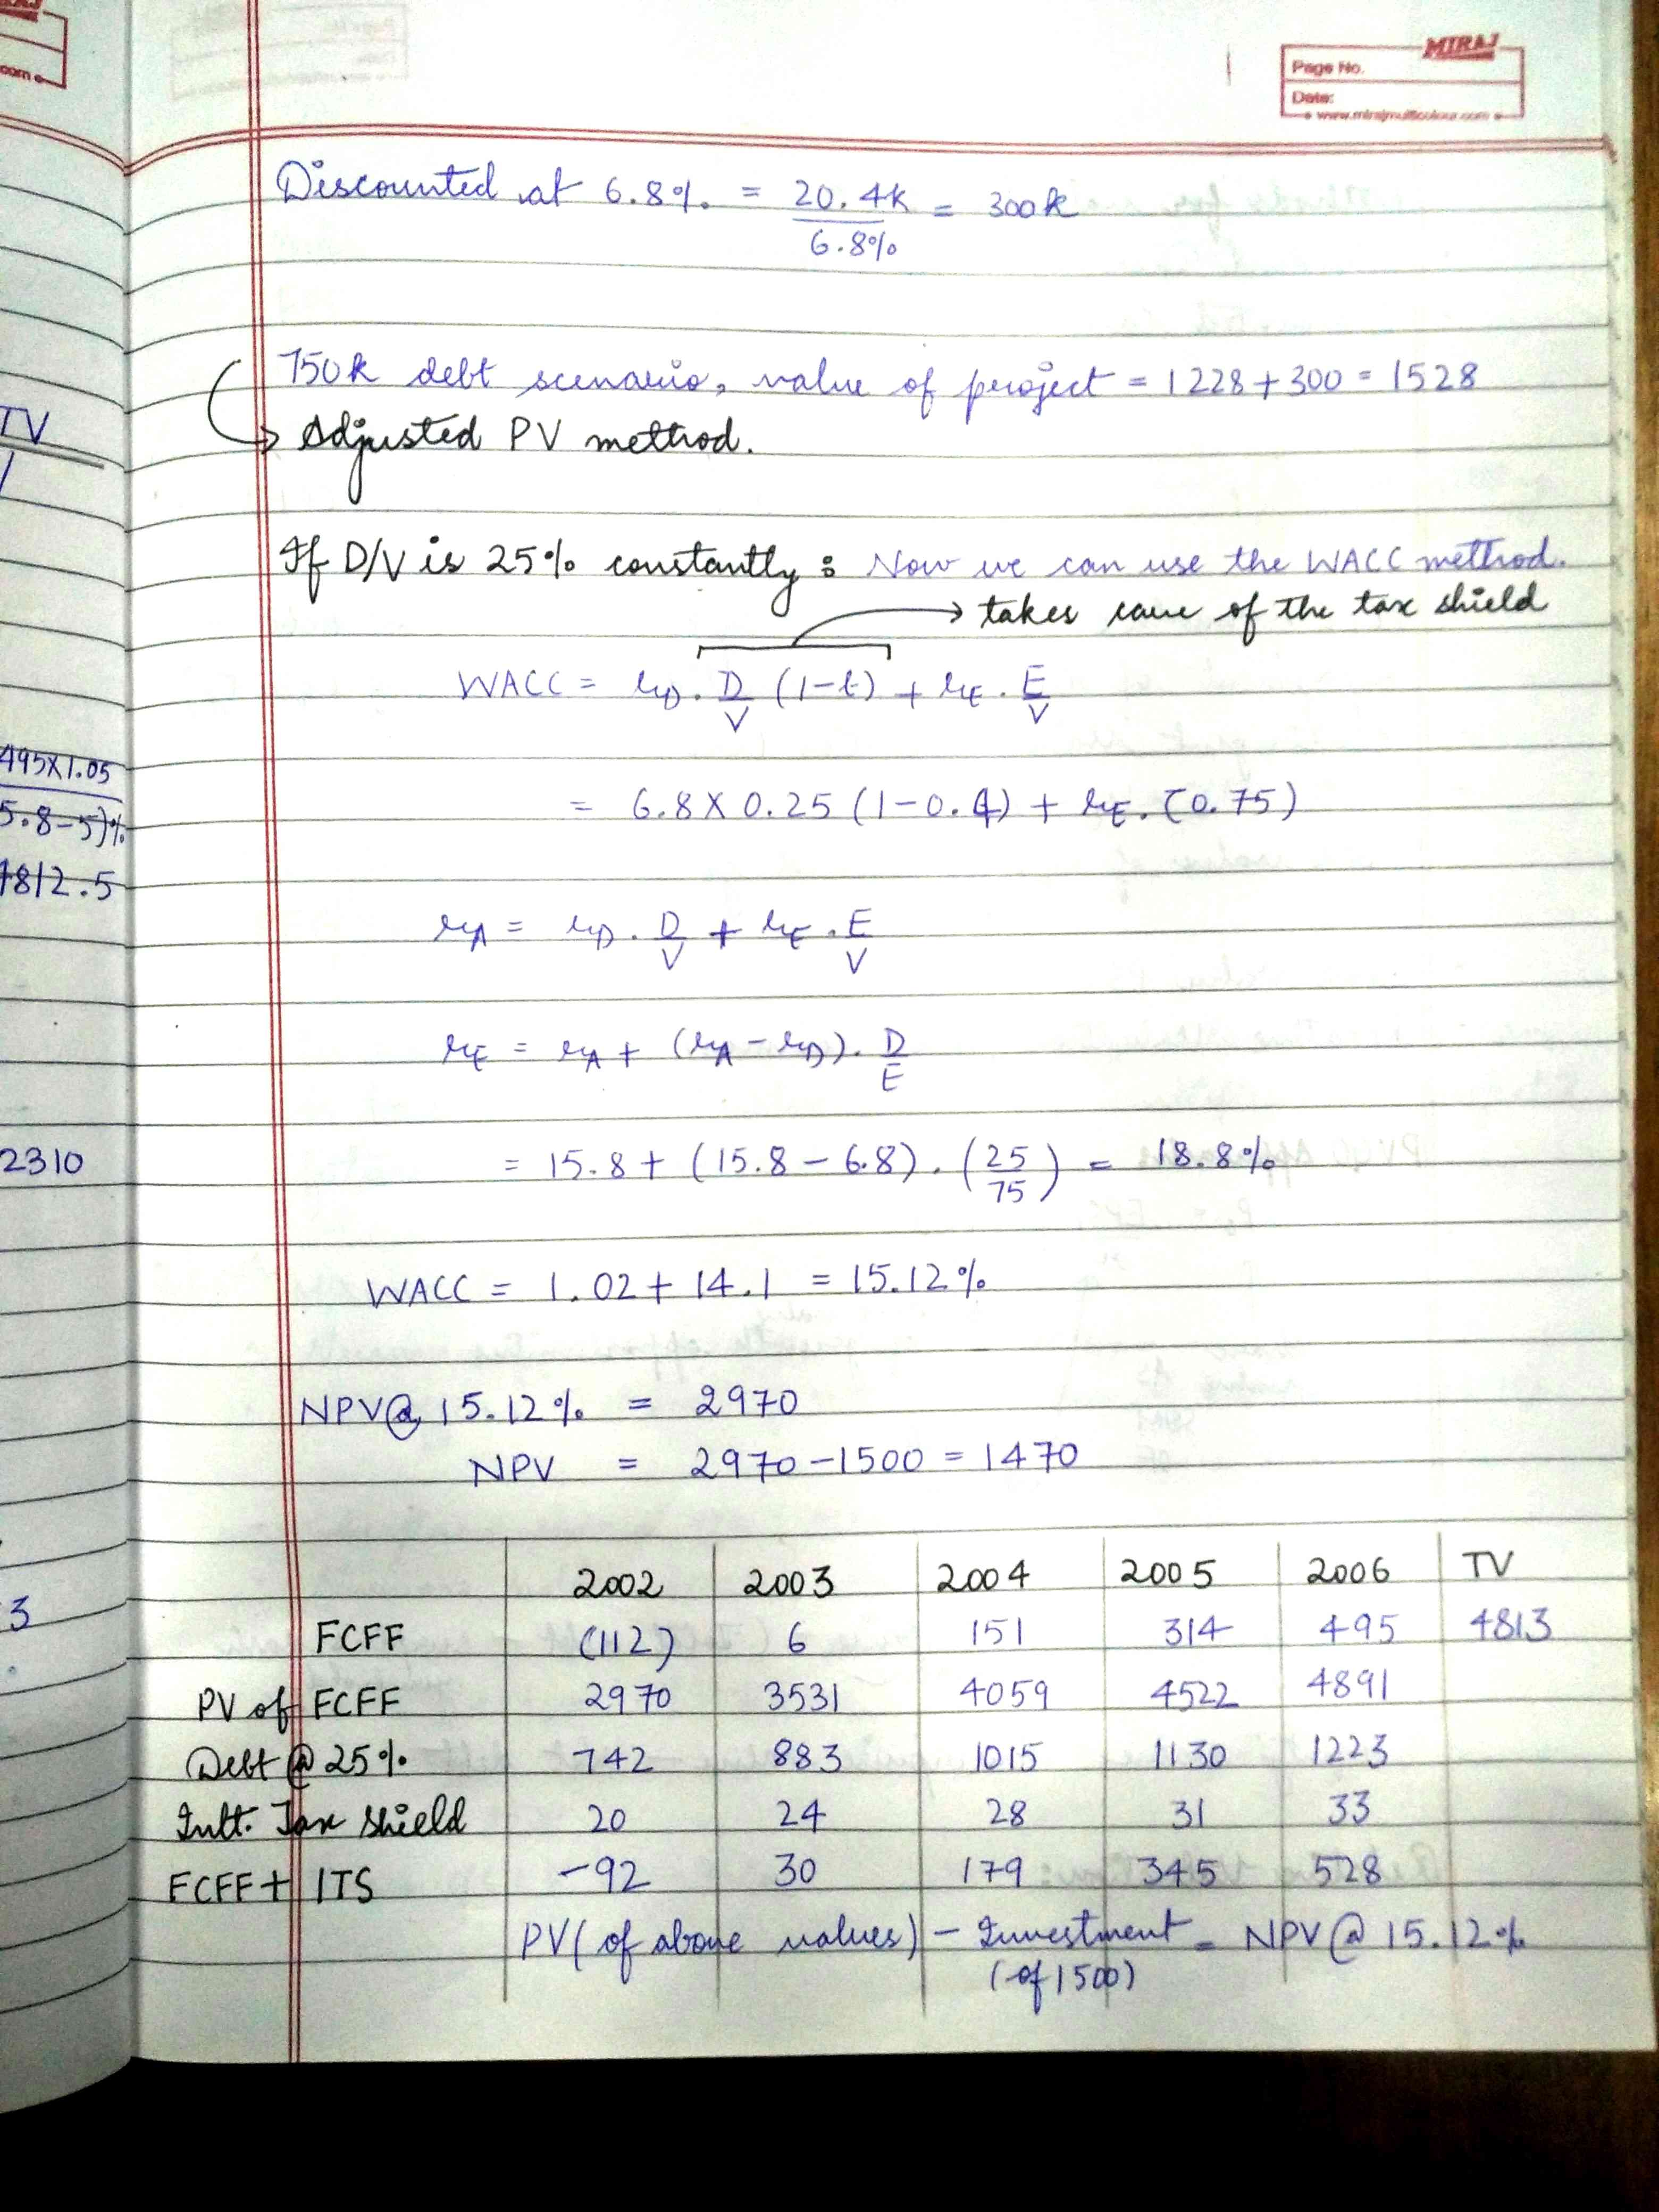 MIRAJ
Page No.
Date:
www.mirajmulticolour.com
Discounted at 6.8% = 20.4k / 6.8% = 300k
750k debt scenario, value of project = 1228 + 300 = 1528
→ Adjusted PV method.
If D/V is 25% constantly : Now we can use the WACC method.
→ takes care of the tax shield
WACC = rD . D/V (1-t) + rE . E/V
= 6.8 X 0.25 (1-0.4) + rE . (0.75)
rA = rD . D/V + rE . E/V
rE = rA + (rA - rD) . D/E
= 15.8 + (15.8 - 6.8) . (25/75) = 18.8%
WACC = 1.02 + 14.1 = 15.12%
NPV@ 15.12% = 2970
NPV = 2970 - 1500 = 1470
2002 2003 2004 2005 2006 TV
FCFF (112) 6 151 314 495 4813
PV of FCFF 2970 3531 4059 4522 4891
Debt @ 25% 742 883 1015 1130 1223
Intt. Tax Shield 20 24 28 31 33
FCFF + ITS -92 30 179 345 528
PV (of above values) - Investment = NPV @ 15.12%
(of 1500)
com
TV
495X1.05
5.8-5)%
4812.5
2310
3